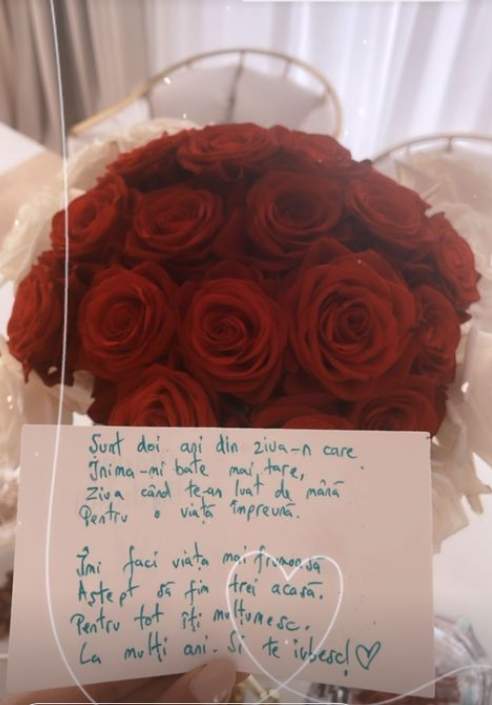 Sunt doi ani din ziua-n care
Inima-mi bate mai tare,
Ziua când te-am luat de mână
Pentru o viață împreună.
Îmi faci viața mai frumoasă
Aștept să fim trei acasă.
Pentru tot îți mulțumesc.
La mulți ani. Si te iubesc! ♡